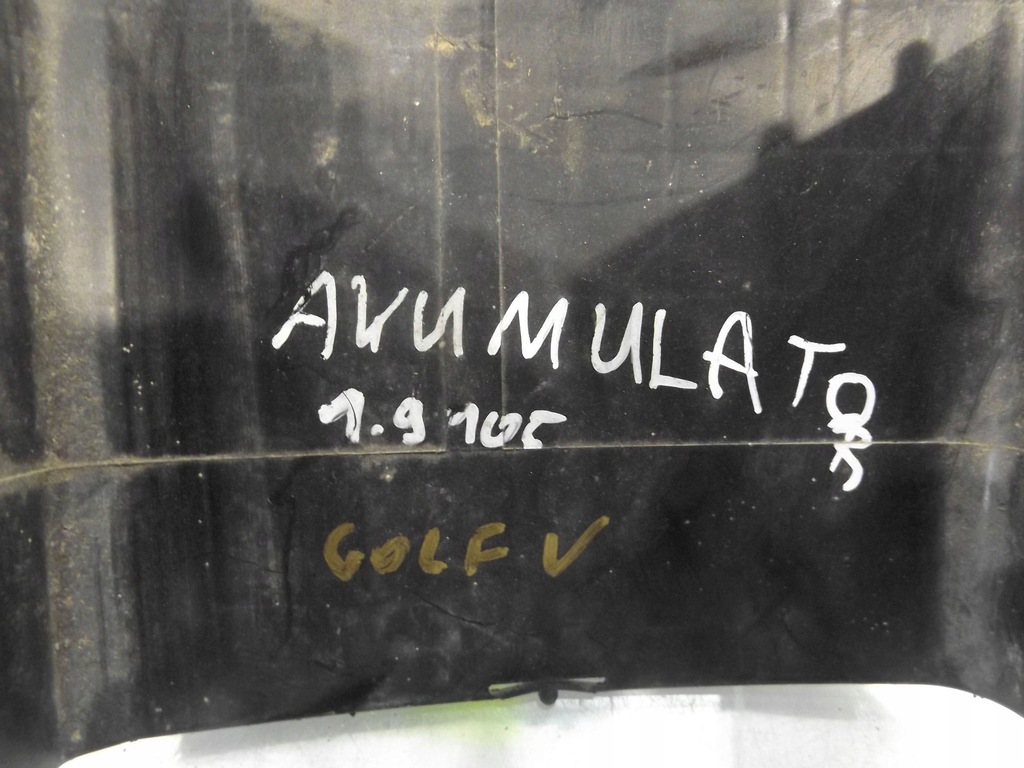 AKUMULATOR
1.9 105
GOLF V